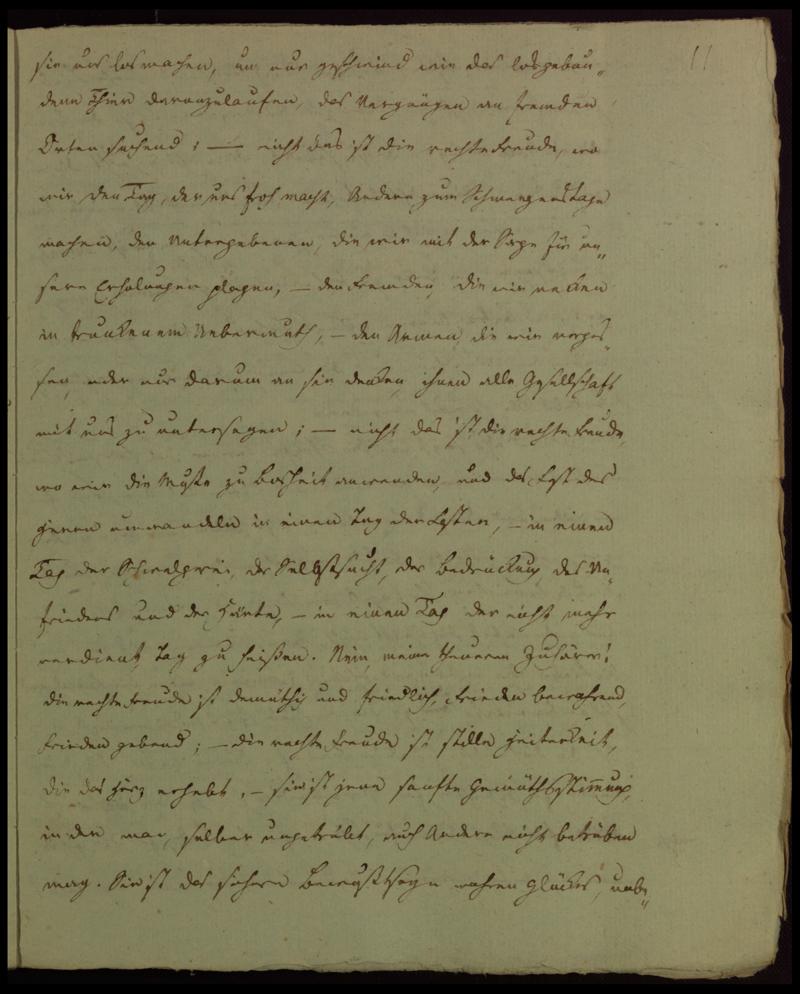 11
sie uns losmachen, um nur geschwind wie das losgebun„
dene Thier davonzulaufen, das Vergnügen an fremden
Orten suchend; — nicht das ist die rechte Freude, wo
wir den Tag, der uns froh macht, Andern zum Schmerzenstage
machen, den Untergebenen, die wir mit der Sorge für un„
sere Erholungen plagen, — den Fremden, die wir necken
in trunkenem Uebermuth, — den Armen, die wir verges„
sen, oder nur darum an sie denken, ihnen alle Gesellschaft
mit uns zu untersagen; — nicht das ist die rechte Freude,
wo wir die Muße zu Bosheit anwenden, und das Fest des
Herrn umwandeln in einen Tag der Laster, — in einen
Tag der Schwelgerei, der Selbstsucht, der Bedrückung, des Un„
friedens und der Härte, — in einen Tag der nicht mehr
verdient, Tag zu heißen. Nein, meine theueren Zuhörer!
die rechte Freude ist demüthig und friedlich, Frieden bewahrend,
Frieden gebend; — die rechte Freude ist stille Heiterkeit,
die das Herz erhebt, — sie ist jene sanfte Gemüthsstimmung,
in der man, selber ungetrübt, auch Andere nicht betrüben
mag. Sie ist das sichere Bewußtseyn wahren Glückes, unbe„